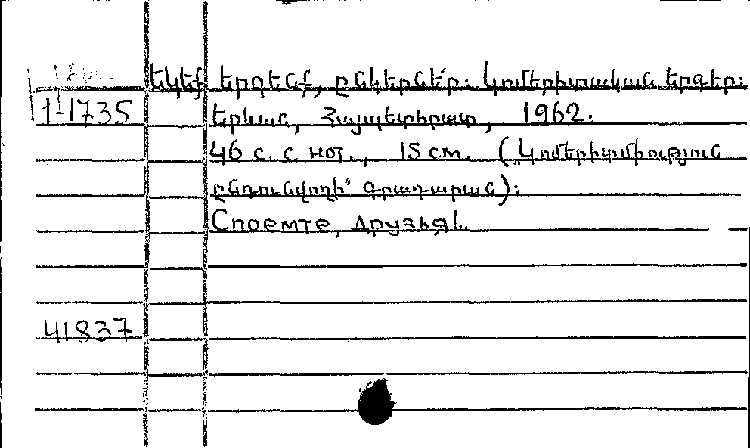 Եկեք երգենք, ընկերներ: Կոմերիտական երգեր:
1-1735 Երևան, Հայպետհրատ, 1962.
46 с. с нот., 15 см. (Կոմերիտմիություն
ընդունվողի՝ գրադարան):
Споемте, друзья!.
41837